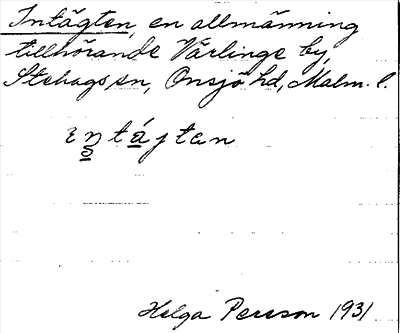 Intägten, en allmänning
tillhörande Värlinge by,
Stehags sn, Onsjö hd, Malm. l.
intájtan
Helga Persson 1931